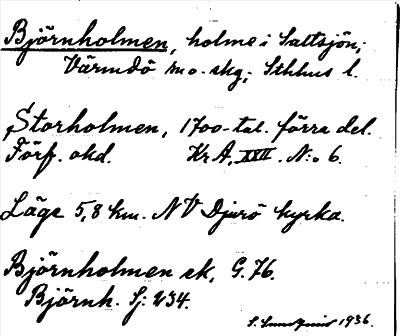 Björnholmen, holme i Saltsjön;
Värmdö sn o. skg; Sthlms l.
Storholmen, 1700-tal. förra del.
Förf. okd. Kr A, XXII. N:o 6.
Läge 5,8 km. NV Djurö kyrka.
Björnholmen ek, G. 76.
Björnh. Sj: 234.
1936.